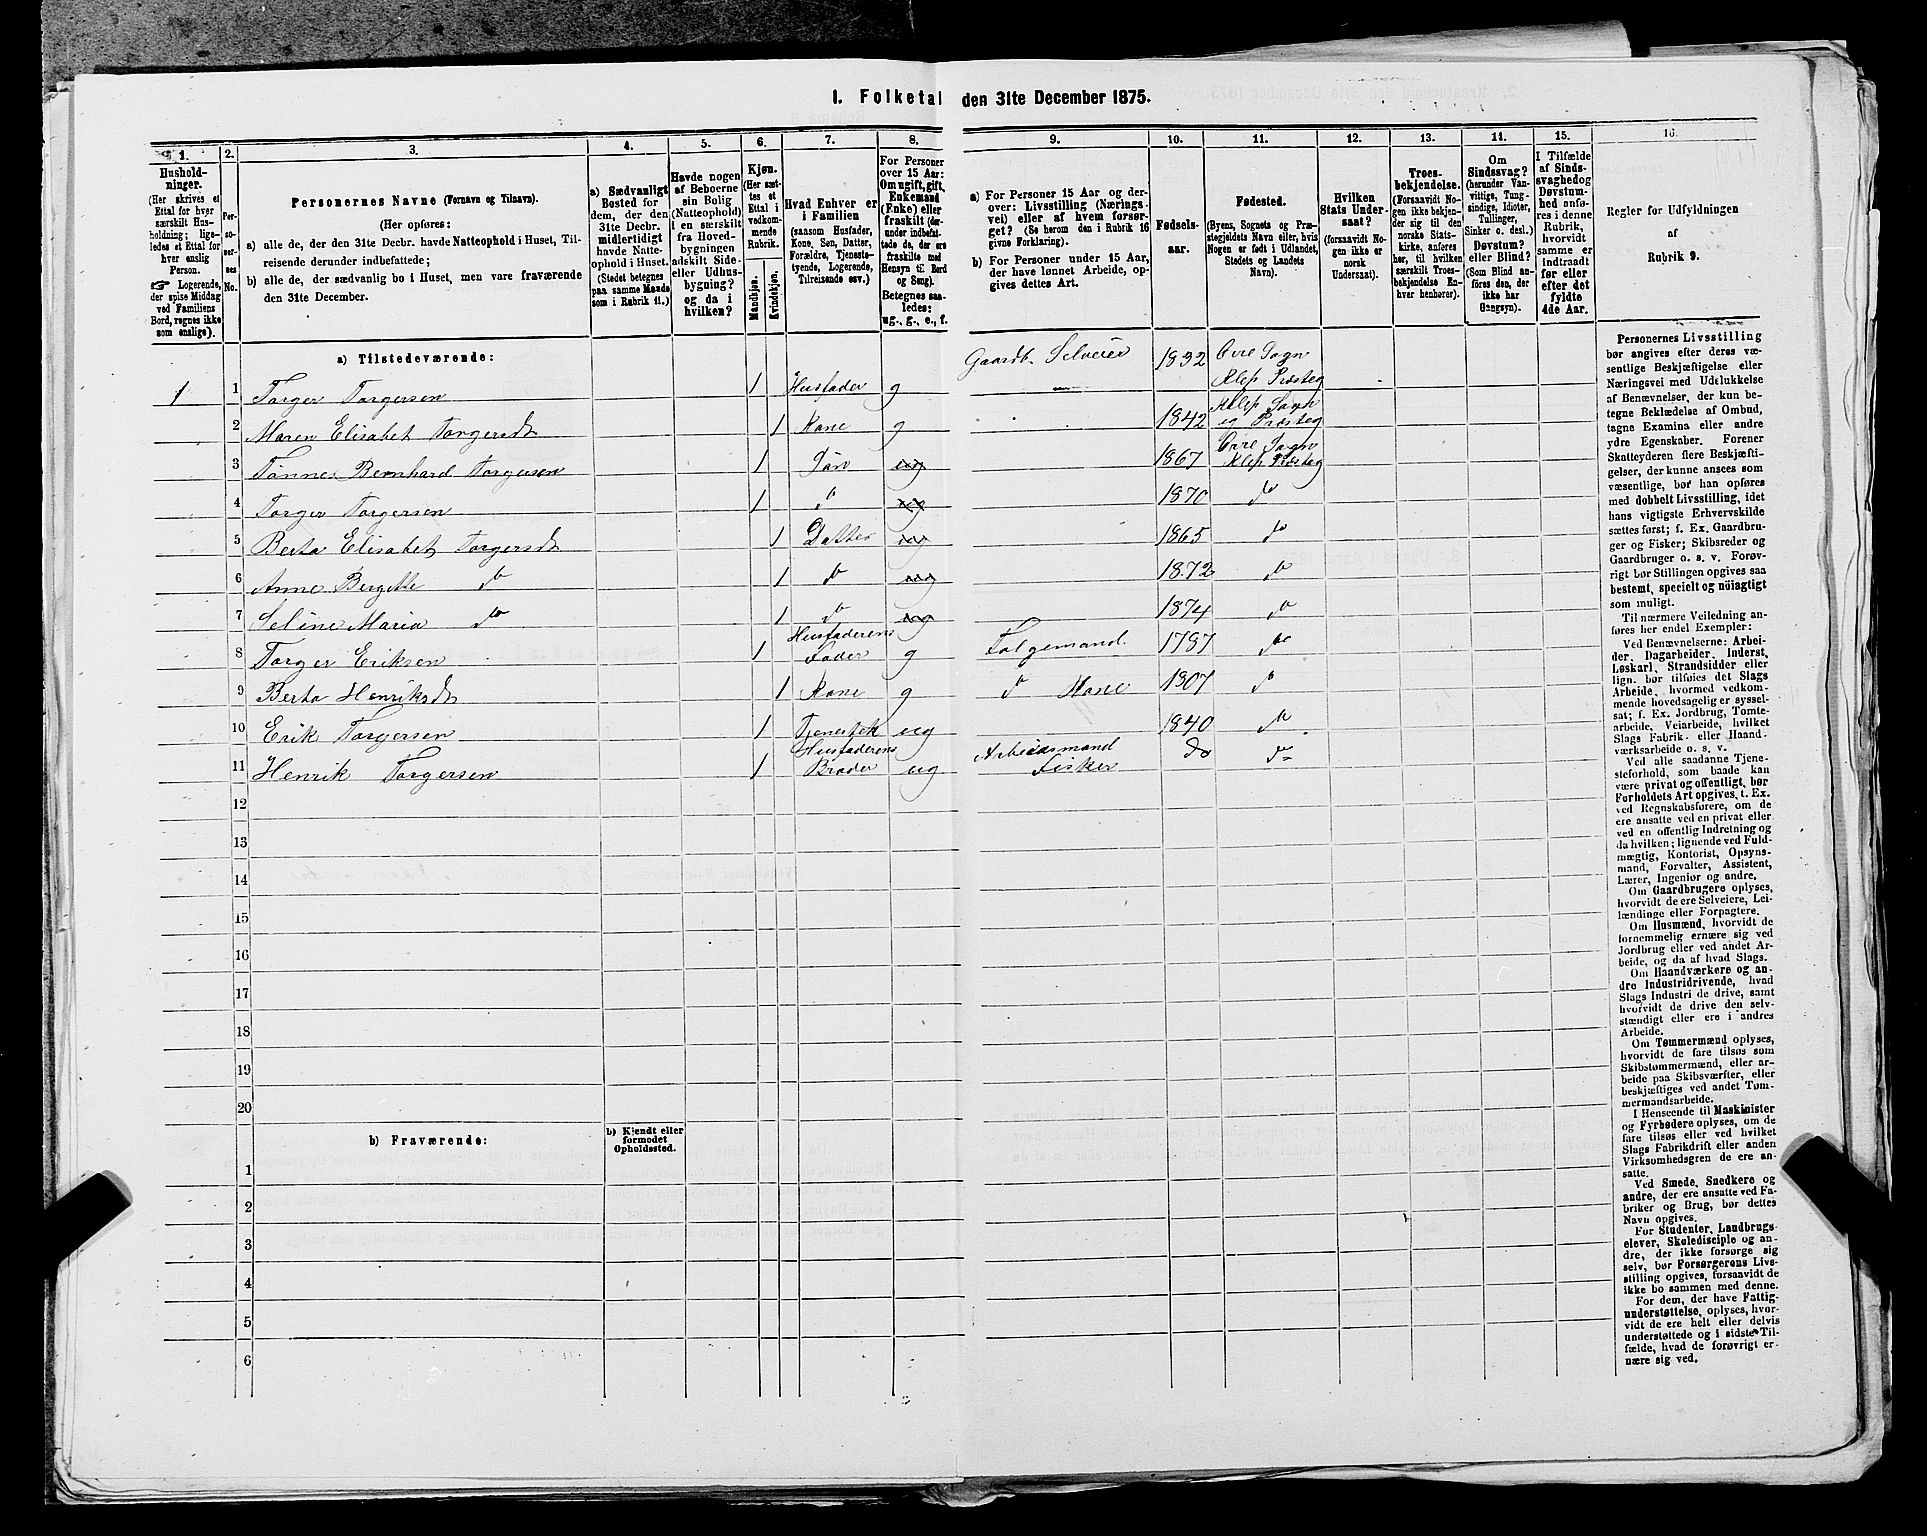 1. Folketal den 31te December 1875.
1.
Hushold-
ninger.
(Her skrives et
Ettal for hver
særskilt Hus-
holdning; lige-
ledes et Ettal for
hver enslig
Person.
☞ Logerende,
der spise Middag
ved Familiens
Bord, regnes ikke
som enslige).
2.
Per-
so-
ner-
nes
No.
3.
Personernes Navne (Fornavn og Tilnavn).
(Her opføres:
a) alle de, der den 31te Decbr. havde Natteophold i Huset, Til-
reisende derunder indbefattede;
b) alle de, der sædvanlig bo i Huset, men vare fraværende
den 31te December.
4.
a) Sædvanligt
Bosted for
dem, der den
31te Decbr.
midlertidigt
havde Natte-
ophold i Huset.
(Stedet betegnes
paa samme Maade
som i Rubrik 11.)
5.
Havde nogen
af Beboerne
sin Bolig
(Natteophold)
i en særskilt
fra Hoved-
bygningen
adskilt Side-
eller Udhus-
bygning?
og da i
hvilken?
6.
Kjøn.
(Her sæt-
tes et
Ettal i
vedkom-
mende
Rubrik.
Mandkjøn.
Kvindekjøn.
7.
Hvad Enhver er
i Familien
(saasom Husfader,
Kone, Søn, Datter,
Forældre, Tjeneste-
tyende, Logerende,
Tilreisende osv.)
8.
For Personer
over 15 Aar:
Om ugift, gift,
Enkemand
(Enke) eller
fraskilt (der-
under indbefat-
tede de, der ere
fraskilte med
Hensyn til Bord
og Seng).
Betegnes saa-
ledes:
ug., g., e., f.
9.
a) For Personer 15 Aar og der-
over: Livsstilling (Nærings-
vei) eller af hvem forsør-
get? (Se herom den i Rubrik 16
givne Forklaring).
b) For Personer under 15 Aar,
der have lønnet Arbeide, op-
gives dettes Art.
10.
Fødsels-
aar.
11.
Fødested.
(Byens, Sognets og Præ-
stegjeldets Navn eller, hvis
Nogen er født i Udlandet,
Stedets og Landets
Navn).
12.
Hvilken
Stats Under-
saat?
(forsaavidt No-
gen ikke er
norsk
Undersaat).
13.
Troes-
bekjendelse.
(Forsaavidt No-
gen ikke bekjen-
der sig til den
norske Stats-
kirke, anføres
her, til hvilken
særskilt Troes-
bekjendelse En-
hver henhører).
14.
Om
Sindssvag?
(herunder Van-
vittige, Tung-
sindige, Idioter,
Tullinger,
Sinker o. desl.)
Døvstum?
eller Blind?
(Som Blind an-
føres den, der
ikke har
Gangsyn).
15.
I Tilfælde
af Sinds-
svaghed og
Døvstum-
hed anfø-
res i denne
Rubrik,
hvorvidt
samme er
indtraadt
før eller
efter det
fyldte
4de Aar.
16.
Regler for Udfyldningen
af
Rubrik 9.
a) Tilstedeværende:
1 1 Torger Torgersen 1 Husfader g Gaardb. Selveier 1832 Orre Sogn
Klep Præsteg
2 Maren Elisabet Torgersdt 1 Kone g 1842 Klep Sogn
og Præsteg
3 Tønnes Bernhard Torgersen 1 Søn ug 1867 Orre Sogn
Klep Præsteg
4 Torger Torgersen 1 do ug 1870 do
5 Berta Elisabet Torgersdt 1 Datter ug 1865 do
6 Anne Bergitte do 1 do ug 1872 do
7 Seline Maria do 1 do ug 1874 do
8 Torger Eriksen 1 Husfaderens
Fader g Folgemand 1787 do
9 Berta Henriksdt 1 Kone g do Kone 1807 do
10 Erik Torgersen 1 Tjenestek ug 1840 do
11 Henrik Torgersen 1 Husfaderens
Broder ug Arbeidsmand
Fisker do do
12
13
14
15
16
17
18
19
20
b) Fraværende:
b) Kjendt eller
formodet
Opholdssted.
1
2
3
4
5
6
Personernes Livsstilling
bør angives efter deres væ-
sentlige Beskjæftigelse eller
Næringsvei med Udelukkelse
af Benævnelser, der kun be-
tegne Beklædelse af Ombud,
tagne Examina eller andre
ydre Egenskaber. Forener
Skatteyderen flere Beskjæfti-
gelser, der kunne ansees som
væsentlige, bør han opføres
med dobbelt Livsstilling, idet
hans vigtigste Erhvervskilde
sættes først; f. Ex. Gaardbru-
ger og Fisker; Skibsreder og
Gaardbruger o. s. v. Forøv-
rigt bør Stillingen opgives saa
bestemt, specielt og nöiagtigt
som muligt.
Til nærmere Veiledning an-
føres her endel Exempler:
Ved Benævnelserne: Arbei-
der, Dagarbeider, Inderst,
Løskarl, Strandsidder eller
lign. bør tilføies det Slags
Arbeide, hvormed vedkom-
mende hovedsagelig er syssel-
sat; f. Ex. Jordbrug, Tomte-
arbeide, Veiarbeide, hvilket
Slags Fabrik- eller Haand-
værksarbeide o. s. v.
Ved alle saadanne Tjene-
steforhold, som baade kan
være privat og offentligt, bør
Forholdets Art opgives, t. Ex.
ved Regnskabsførere, om de
ere ansatte ved en privat eller
ved en offentlig Indretning og
da hvilken; lignende ved Fuld-
mægtig, Kontorist, Opsyns-
mand, Forvalter, Assistent,
Lærer, Ingeniør og andre.
Om Gaardbrugere oplyses,
hvorvidt de ere Selveiere, Lei-
lændinge eller Forpagtere.
Om Husmænd, hvorvidt de
fornemmelig ernære sig ved
Jordbrug eller ved andet Ar-
beide, og da af hvad Slags.
Om Haandværkere og an-
dre Industridrivende, hvad
Slags Industri de drive, samt
hvorvidt de drive den selv-
stændigt eller ere i andres
Arbeide.
Om Tømmermænd oplyses,
hvorvidt de fare tilsøs som
Skibstømmermænd, eller ar-
beide paa Skibsværfter, eller
beskjæftiges ved andet Tøm-
mermandsarbeide.
I Henseende til Maskinister
og Fyrbødere oplyses, om de
fare tilsøs eller ved hvilket
Slags Fabrikdrift eller anden
Virksomhedsgren de ere an-
satte.
Ved Smede, Snedkere og
andre, der ere ansatte ved Fa-
briker og Brug, bør dettes
Navn opgives.
For Studenter, Landbrugs-
elever, Skoledisciple og an-
dre, der ikke forsørge sig
selv, bør Forsørgerens Livs-
stilling opgives, forsaavidt de
ikke bo sammen med denne.
For dem, der have Fattig-
understøttelse, oplyses, hvor-
vidt de ere helt eller delvis
understøttede og i sidste Til-
fælde, hvad de forøvrigt er-
nære sig ved.